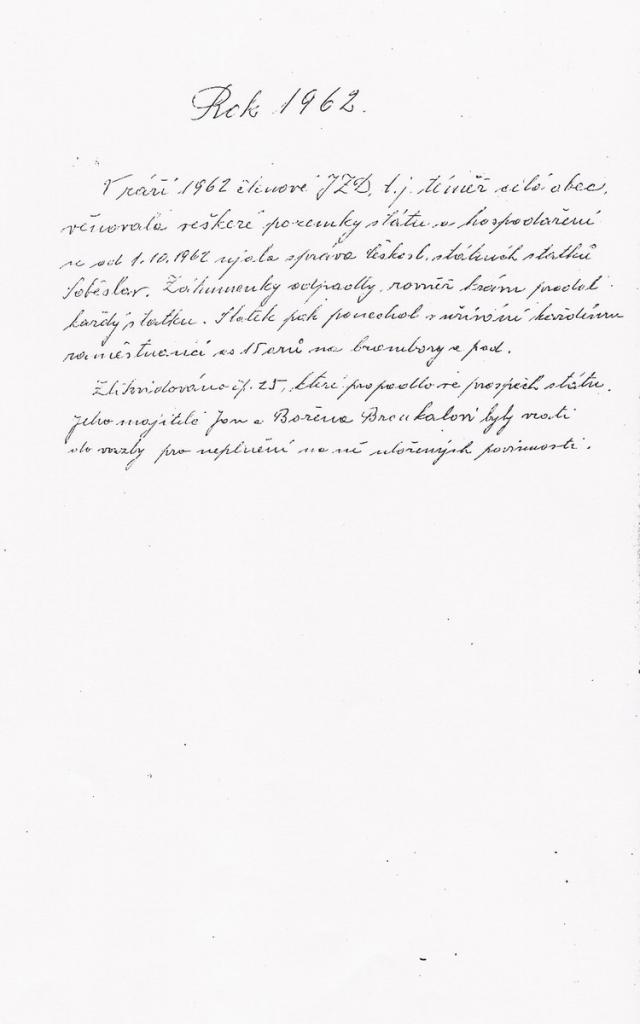 Rok 1962.
V září 1962 členové JZD, t.j. téměř celá obec,
věnovala veškeré pozemky státu a hospodaření
se od 1.10.1962 ujala správa Českosl. státních statků
Soběslav. Záhumenky odpadly, rovněž krávy prodal
každý statku. Statek pak ponechal v užívání každému
zaměstnanci as 15 arů na brambory a pod.
Zlikvidováno čp. 25, které propadlo ve prospěch státu.
Jeho majitelé Jan a Božena Broukalovi byly vzati
do vazby pro neplnění na ně uložených povinností.